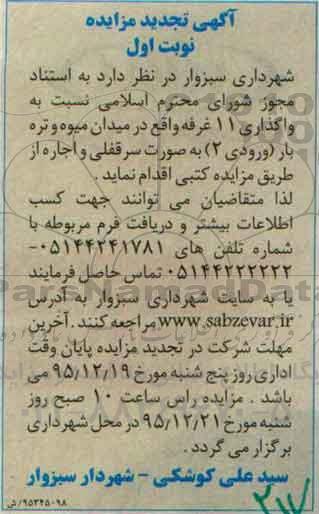 آگهی تجدید مزایده
نوبت اول
شهرداری سبزوار در نظر دارد به استناد
مجوز شورای محترم اسلامی نسبت به
واگذاری ۱۱ غرفه واقع در میدان میوه و تره
بار (ورودی ۲) به صورت سرقفلی و اجاره از
طریق مزایده کتبی اقدام نماید.
لذا متقاضیان می توانند جهت کسب
اطلاعات بیشتر و دریافت فرم مربوطه با
شماره تلفن های ۰۵۱۴۴۲۴۱۷۸۱-
۰۵۱۴۴۲۲۲۲۲۲ تماس حاصل فرمایند
یا به سایت شهرداری سبزوار به آدرس
www.sabzevar.ir مراجعه کنند. آخرین
مهلت شرکت در تجدید مزایده پایان وقت
اداری روز پنج شنبه مورخ ۹۵/۱۲/۱۹ می
باشد. مزایده راس ساعت ۱۰ صبح روز
شنبه مورخ ۹۵/۱۲/۲۱ در محل شهرداری
برگزار می گردد.
سید علی کوشکی - شهردار سبزوار
۲۱۷
۹۵۳۴۵۰۹۸/ش
ParsNamadData